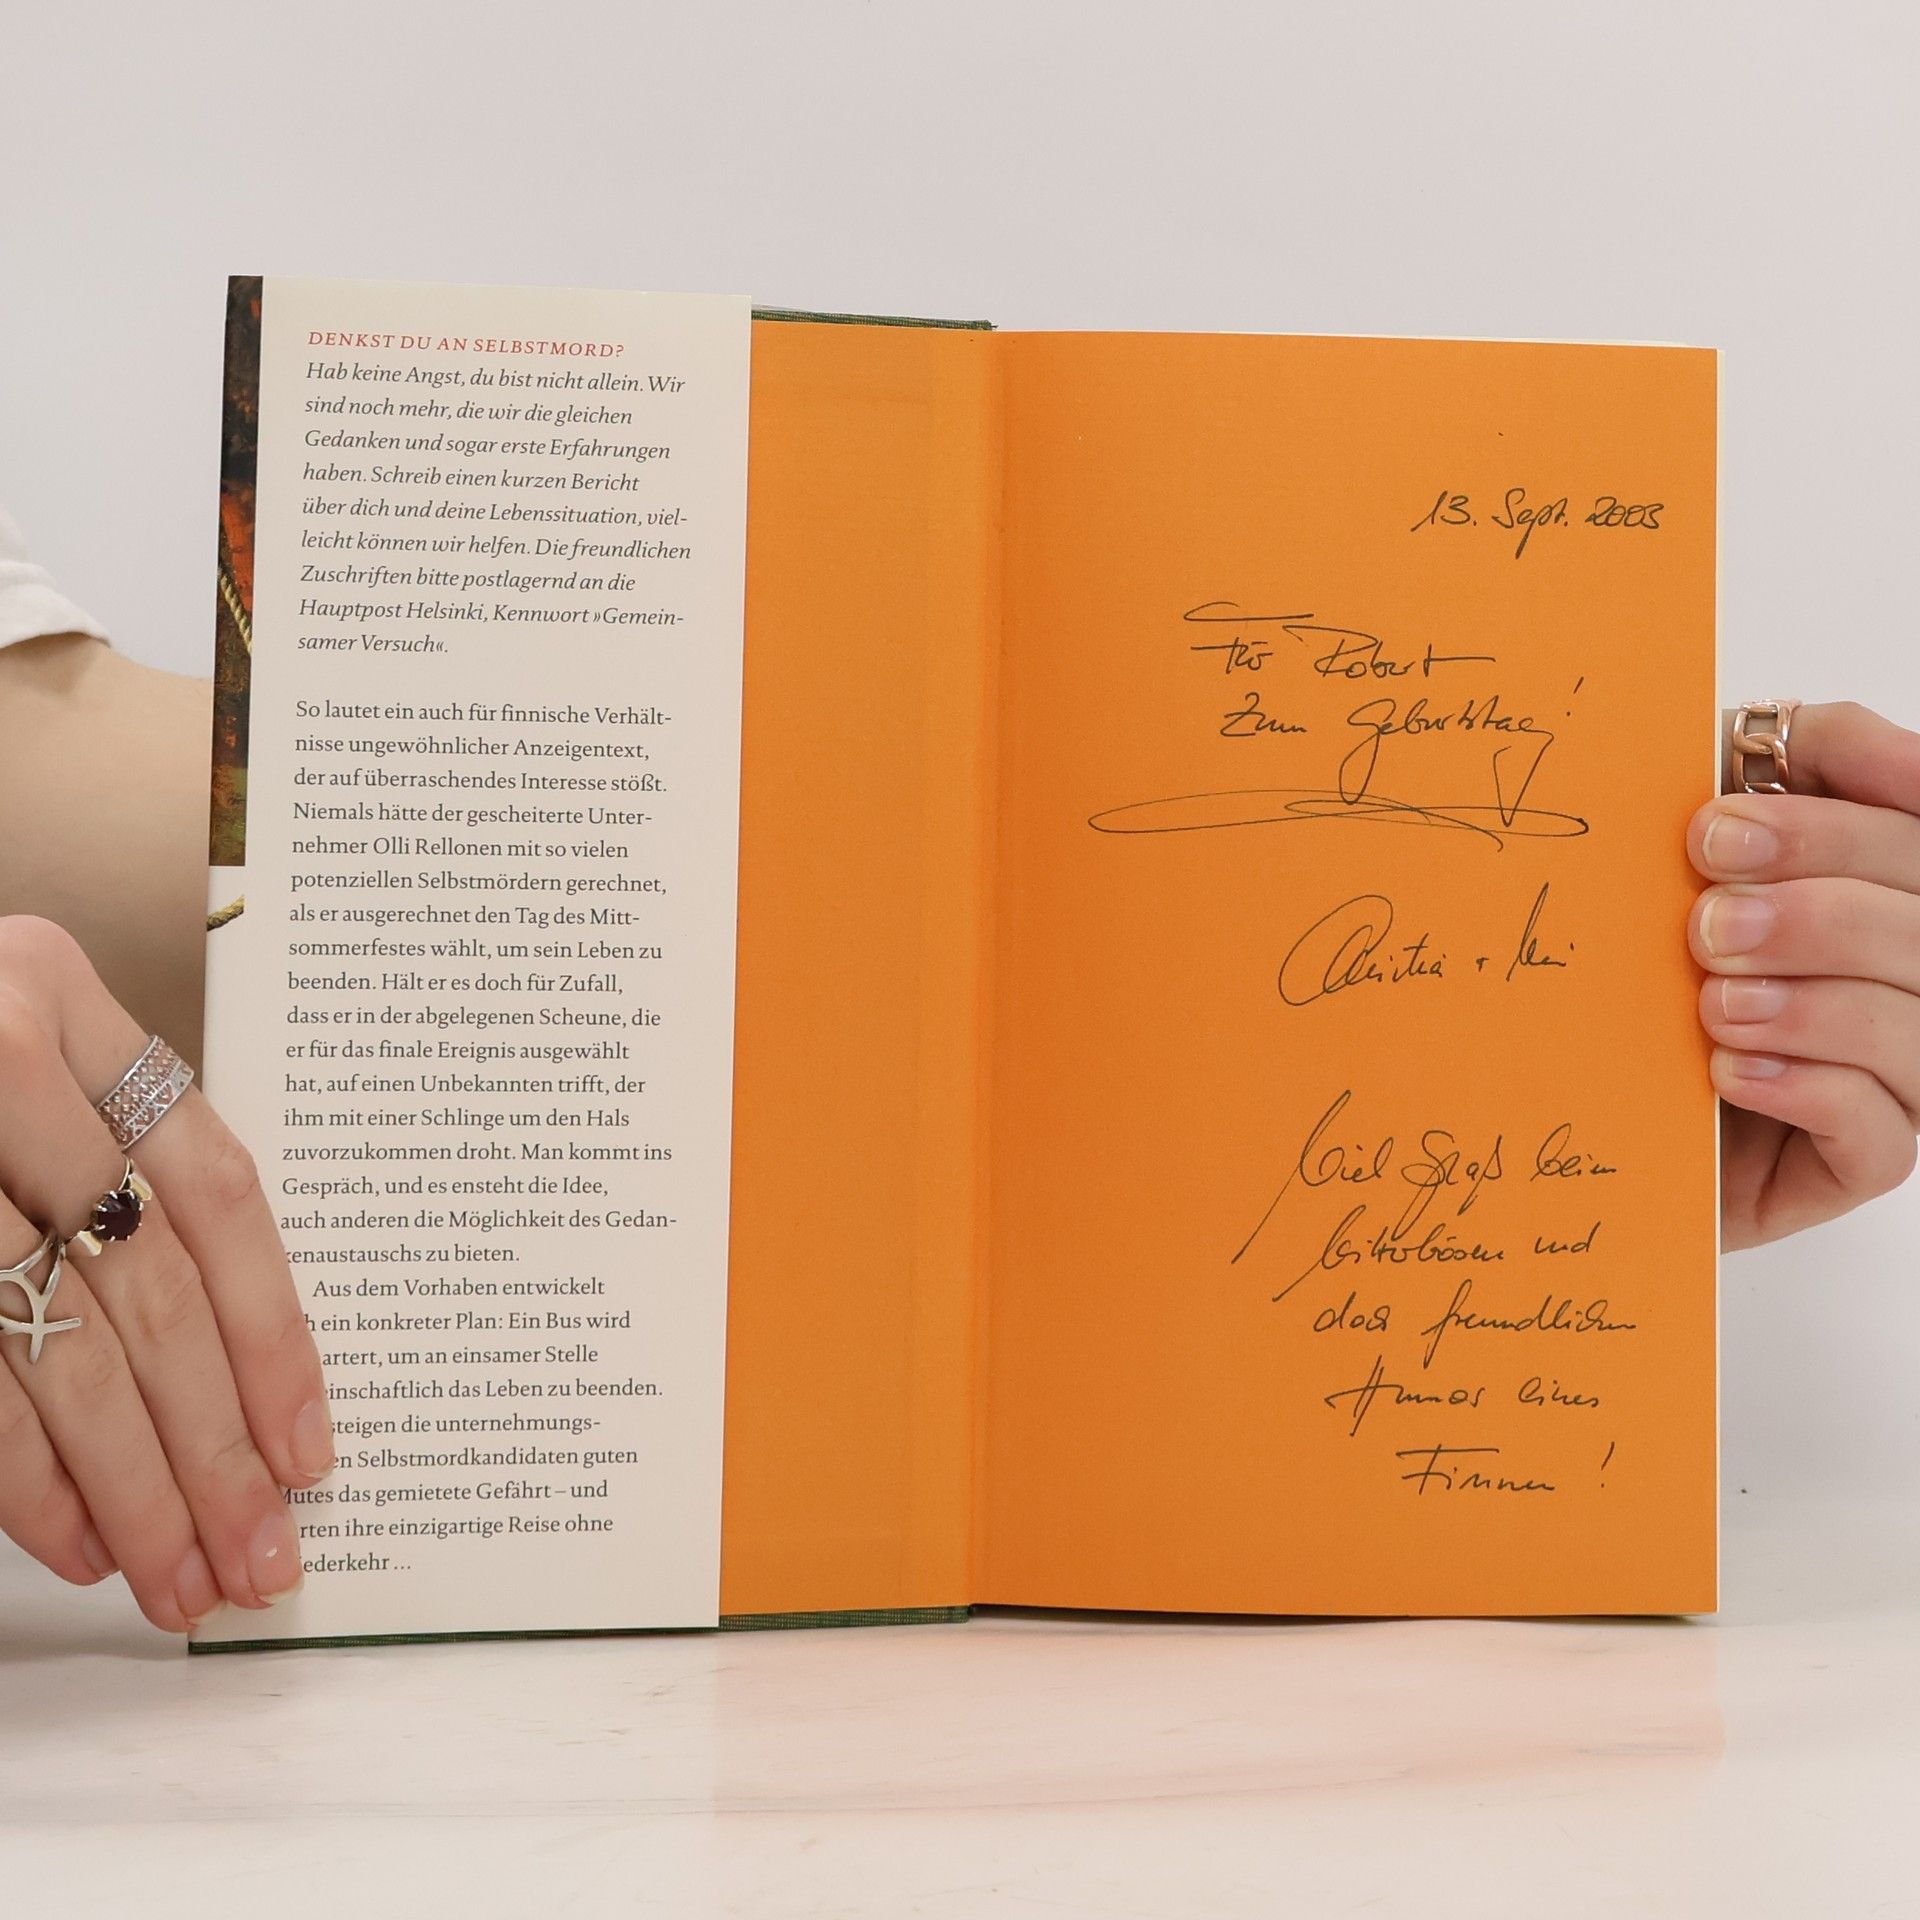 DENKST DU AN SELBSTMORD?
Hab keine Angst, du bist nicht allein. Wir
sind noch mehr, die wir die gleichen
Gedanken und sogar erste Erfahrungen
haben. Schreib einen kurzen Bericht
über dich und deine Lebenssituation, viel-
leicht können wir helfen. Die freundlichen
Zuschriften bitte postlagernd an die
Hauptpost Helsinki, Kennwort »Gemein-
samer Versuch«.
So lautet ein auch für finnische Verhält-
nisse ungewöhnlicher Anzeigentext,
der auf überraschendes Interesse stößt.
Niemals hätte der gescheiterte Unter-
nehmer Olli Rellonen mit so vielen
potenziellen Selbstmördern gerechnet,
als er ausgerechnet den Tag des Mitt-
sommerfestes wählt, um sein Leben zu
beenden. Hält er es doch für Zufall,
dass er in der abgelegenen Scheune, die
er für das finale Ereignis ausgewählt
hat, auf einen Unbekannten trifft, der
ihm mit einer Schlinge um den Hals
zuvorzukommen droht. Man kommt ins
Gespräch, und es ensteht die Idee,
auch anderen die Möglichkeit des Gedan-
kenaustauschs zu bieten.
Aus dem Vorhaben entwickelt
h ein konkreter Plan: Ein Bus wird
artert, um an einsamer Stelle
einschaftlich das Leben zu beenden.
steigen die unternehmungs-
en Selbstmordkandidaten guten
Mutes das gemietete Gefährt – und
rten ihre einzigartige Reise ohne
iederkehr ...
13. Sept. 2003
Für Robert
zum Geburtstag!
Viel Spaß beim
bitterbösen und
doch freundlichen
Humor eines
Finnen!